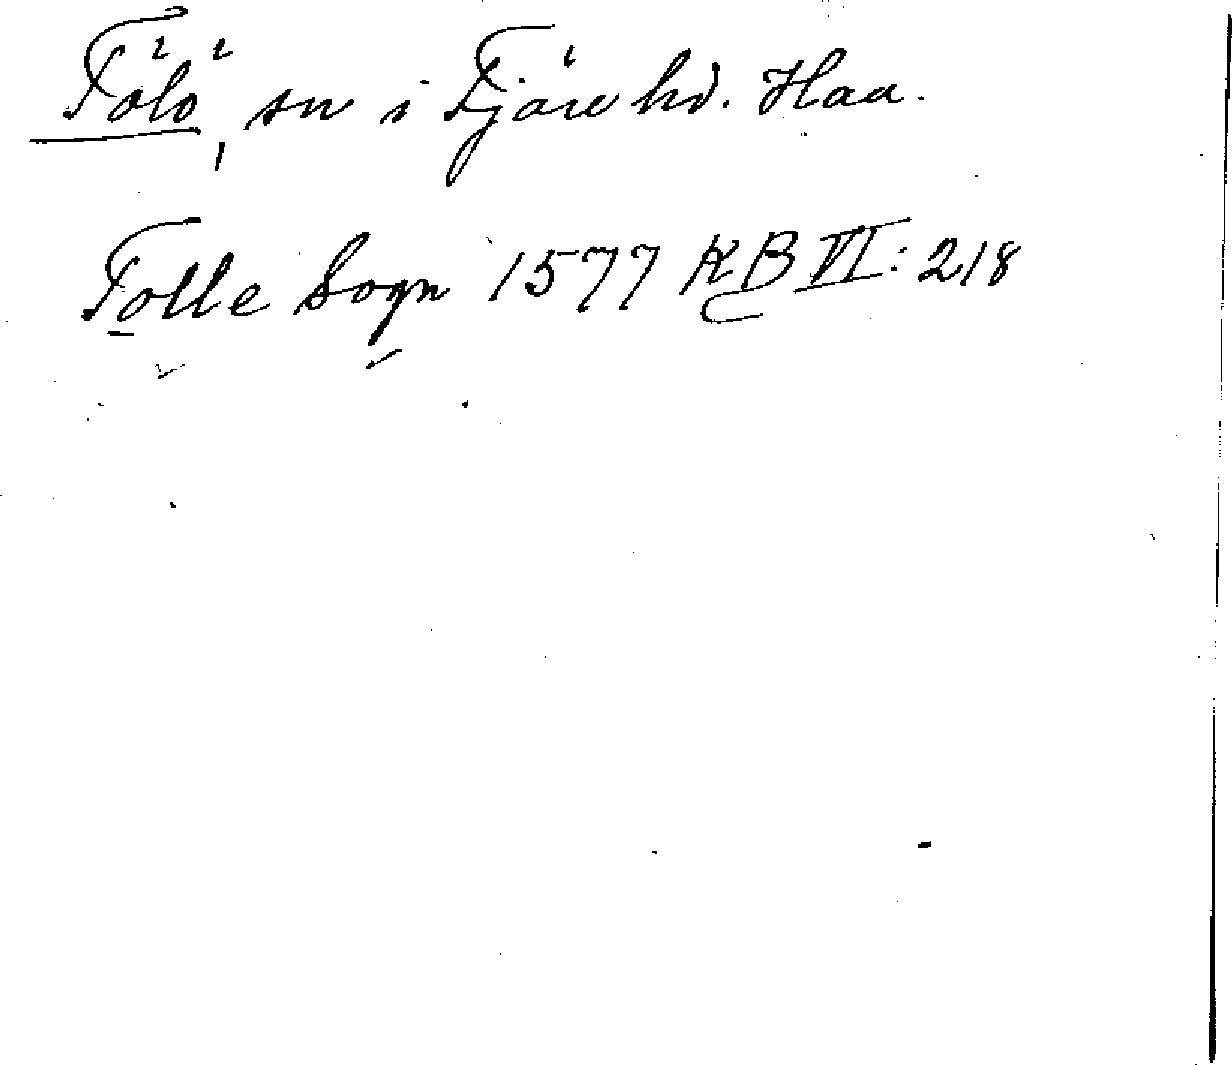 Fölö, sn i Fjäre hd. Haa.
Folle Sogn 1577 KB VI: 218